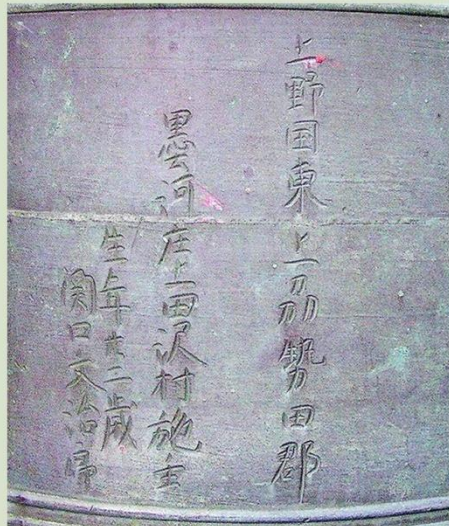 上野国東上刕勢田郡
黒河庄上田沢村施主
生年廿二歳
関口文治郎